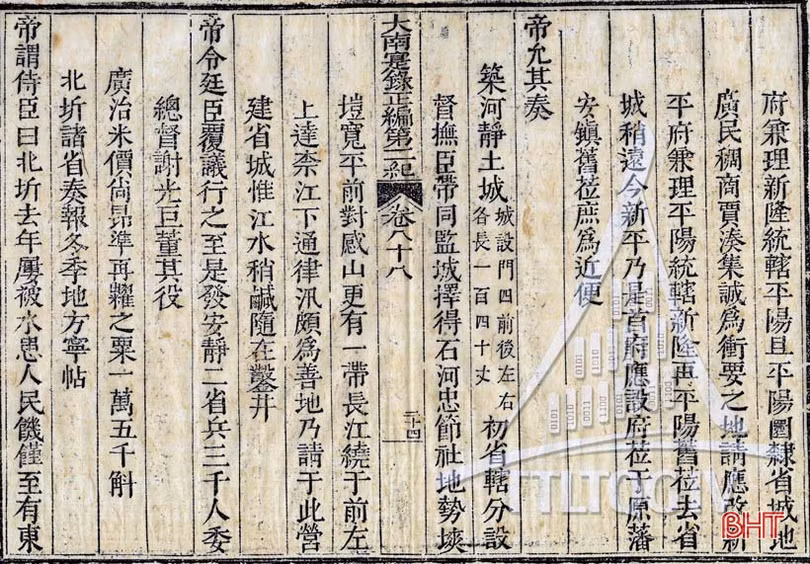 府兼理新隆統轄平陽且平陽圜隸省城地
廣民稠商賈湊集誠為衝要之地請應改新
平府兼理平陽統轄新隆再平陽舊莅去省
城稍遠今新平乃是首府應設府莅于原藩
安鎮舊莅庶為近便
帝允其奏
築河靜土城城設門四前後左右各長一百四十丈初省轄分設
督撫臣帶同監城擇得石河忠節社地勢塽
大南寔錄正編第二紀 卷八十八 二十四
塏寬平前對感山更有一帶長江繞于前左
上達柰江下通律汛頗為善地乃請于此營
建省城惟江水稍鹹隨在鑿井
帝令廷臣覆議行之至是發安靜二省兵三千人委
總督謝光巨董其役
廣治米價尚昂準再糶之粟一萬五千斛
北圻諸省奏報冬季地方寧帖
帝謂侍臣曰北圻去年屢被水患人民饑饉至有東
TTLTQG IV
BHT